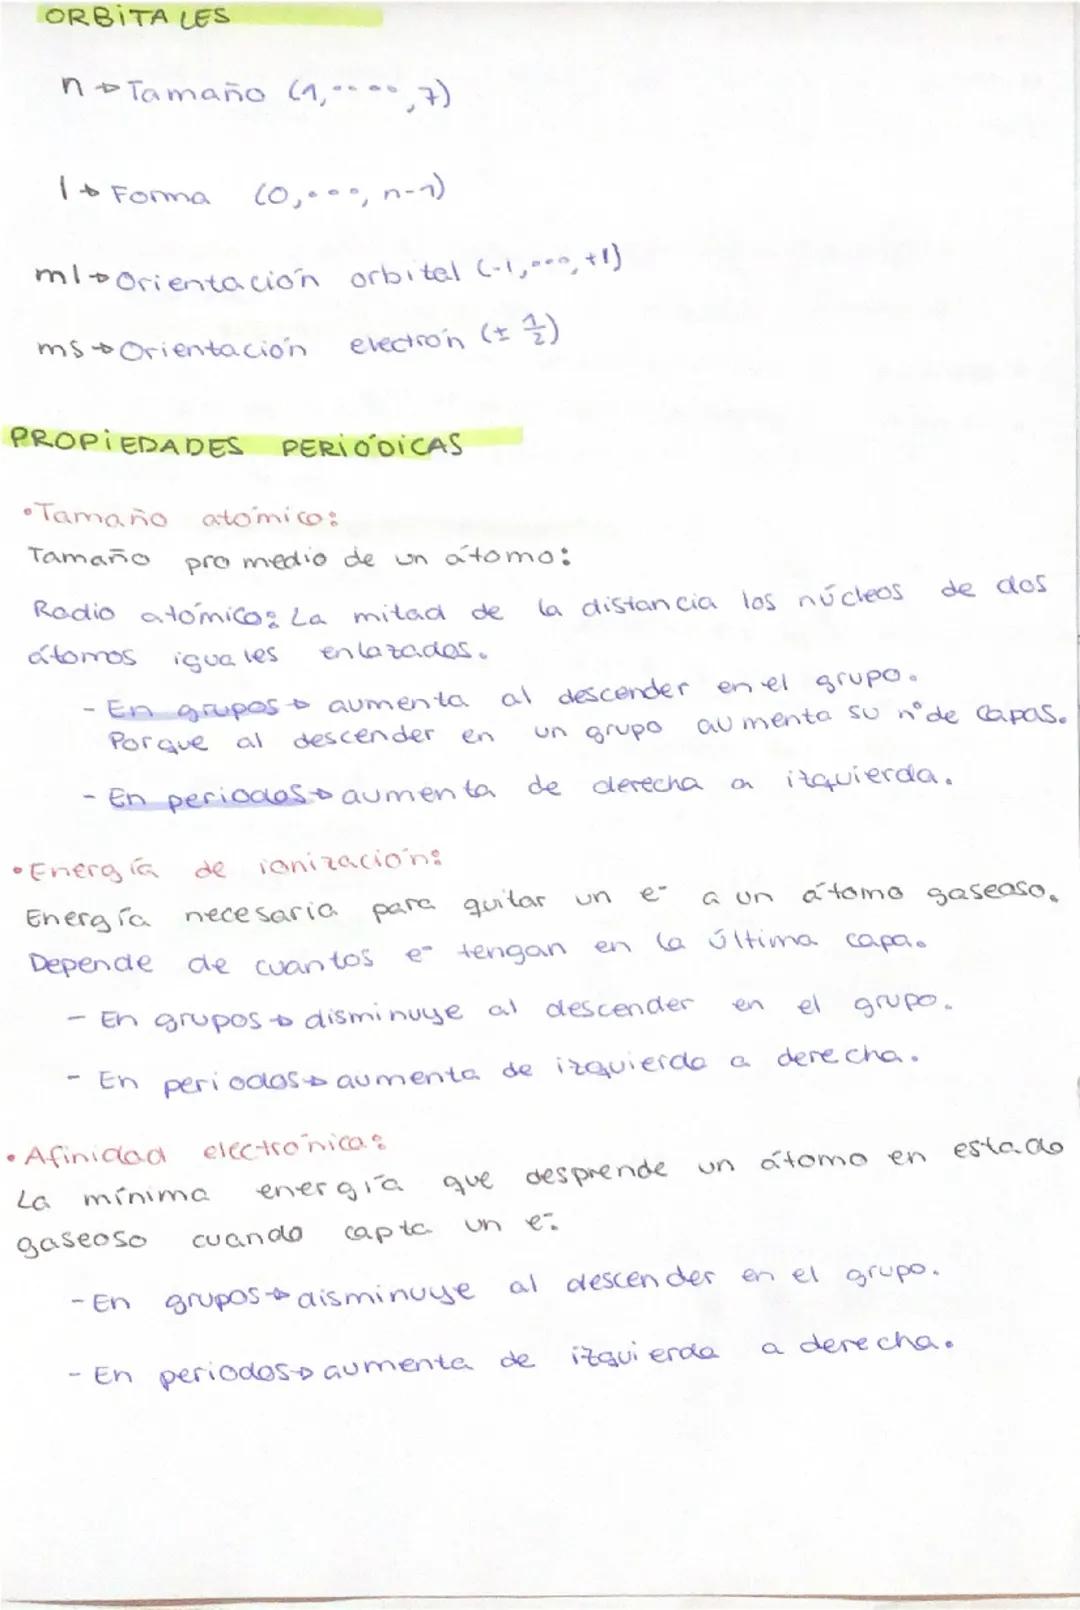 ORBITALES
n → Tamaño (1,....,7)
l → Forma (0,..., n-1)
ml → Orientación orbital (-l,..., +l)
ms → Orientación electrón (± 1/2)
PROPIEDADES PERIÓDICAS
• Tamaño atómico:
Tamaño promedio de un átomo:
Radio atómico: La mitad de la distancia los núcleos de dos
átomos iguales enlazados.
- En grupos → aumenta al descender en el grupo.
Porque al descender en un grupo aumenta su nº de capas.
- En periodos → aumenta de derecha a izquierda.
• Energía de ionización:
Energía necesaria para quitar un e- a un átomo gaseoso.
Depende de cuantos e- tengan en la última capa.
- En grupos → disminuye al descender en el grupo.
- En periodos → aumenta de izquierda a derecha.
• Afinidad electrónica:
La mínima energía que desprende un átomo en estado
gaseoso cuando capta un e-.
- En grupos → disminuye al descender en el grupo.
- En periodos → aumenta de izquierda a derecha.